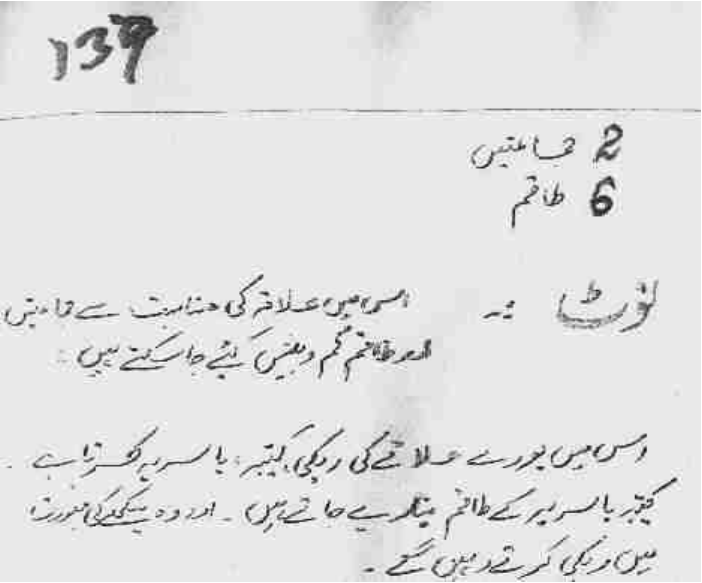 139
2 جماعتیں
6 طاقم
نوٹ :- اس میں علاقہ کی مناسبت سے جماعتیں
اور طاقم کم و بیش کئے جا سکتے ہیں :
اس میں پورے علاقے کی ریکی کتیبہ یا سریہ کرتا ہے .
کتیبہ یا سریہ کے طاقم بنادیے جاتے ہیں - اور وہ کی صورت
میں ریکی کرتے رہیں گے -